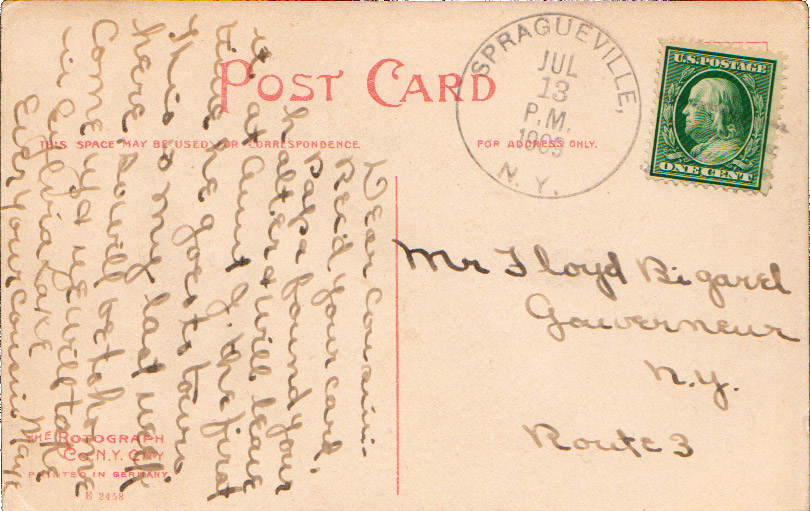 POST CARD
THIS SPACE MAY BE USED FOR CORRESPONDENCE
FOR ADDRESS ONLY.
SPRAGUEVILLE,
JUL
13
P.M.
1909
N. Y.
U.S. POSTAGE
ONE CENT
Dear Cousin:-
Rec'd your card.
Papa found your
halter & will leave
it at Aunt J. the first
time he goes to town
This is my last week
here so will be to home
Come up & we will take
in Sylvia Lake
Ever your cousin
Mr Floyd Bigarel
Gouverneur
N.Y.
Route 3
THE ROTOGRAPH
CO. N.Y. CITY
PRINTED IN GERMANY
E 2458